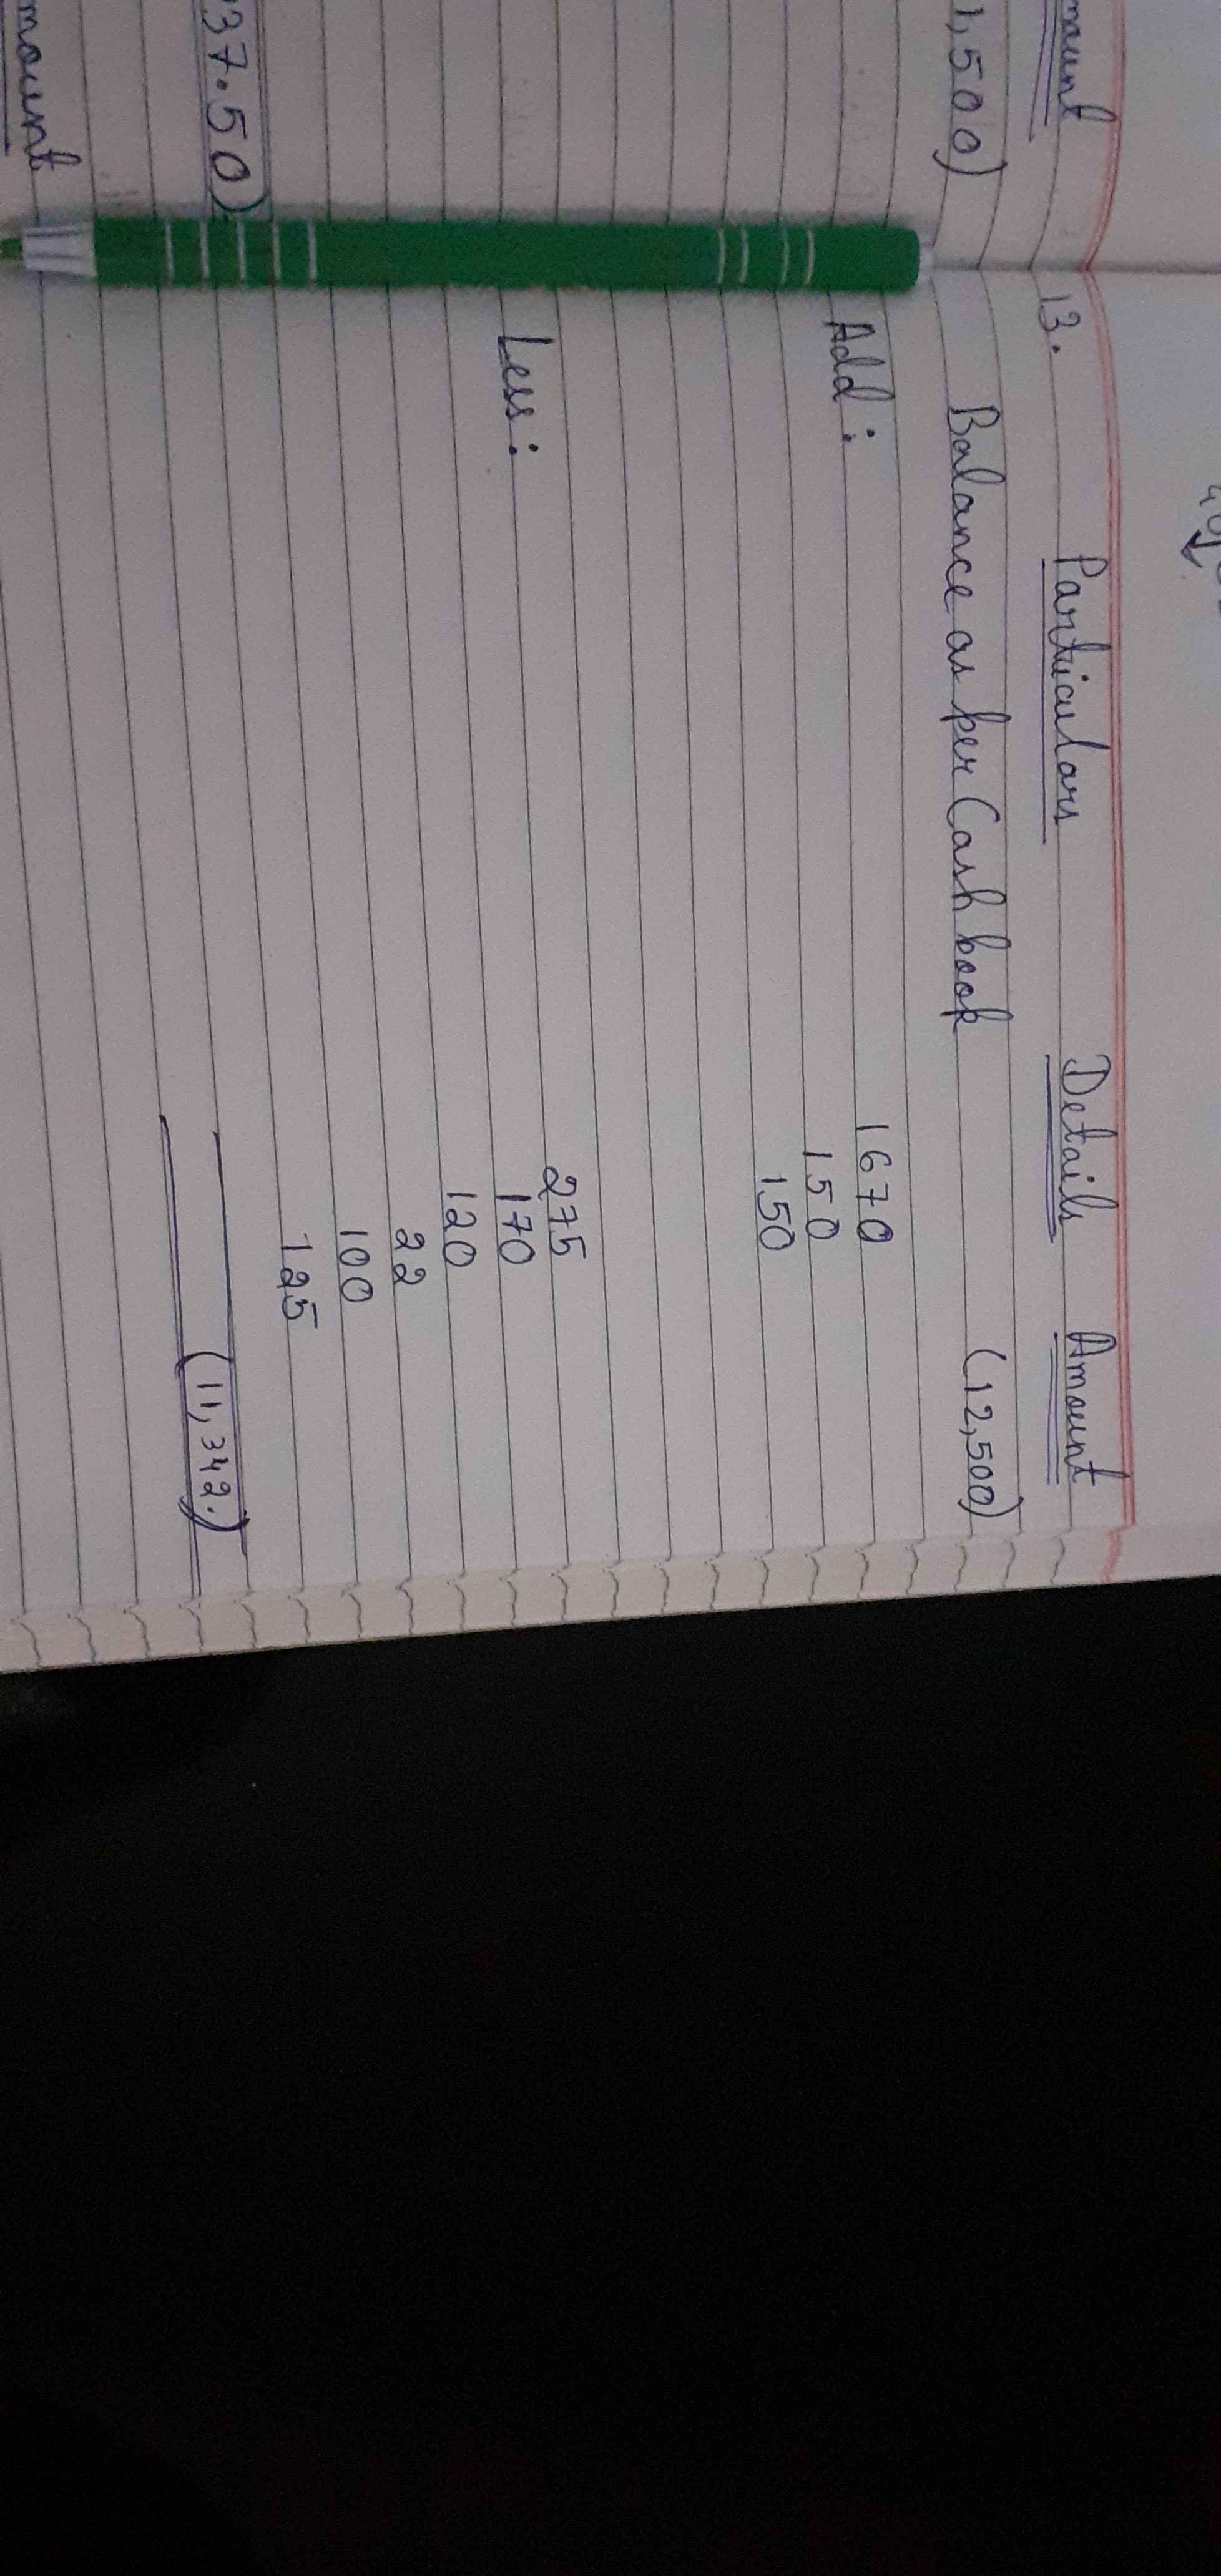 mount
1,500)
37.50)
mount
13. Particulars Details Amount
Balance as per Cash book (12,500)
Add: 1670
150
150
275
Less: 170
120
22
100
125
(11,342.)